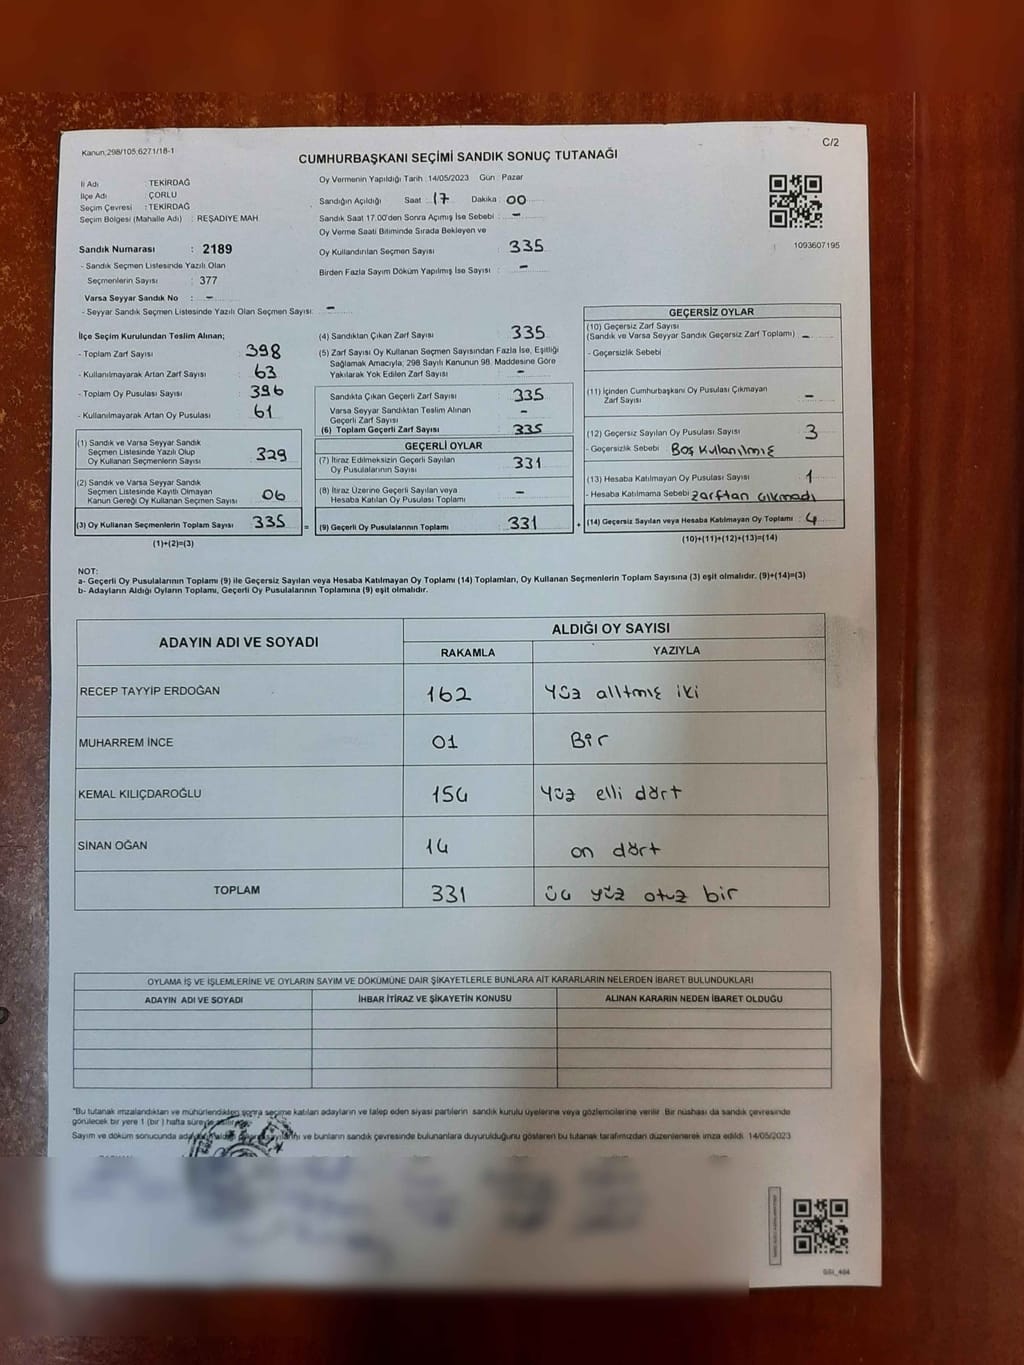 Kanun;298/105;6271/18-1
C/2
CUMHURBAŞKANI SEÇİMİ SANDIK SONUÇ TUTANAĞI
İl Adı : TEKİRDAĞ
İlçe Adı : ÇORLU
Seçim Çevresi : TEKİRDAĞ
Seçim Bölgesi (Mahalle Adı) : REŞADİYE MAH
Sandık Numarası : 2189
- Sandık Seçmen Listesinde Yazılı Olan
Seçmenlerin Sayısı : 377
Varsa Seyyar Sandık No : -
- Seyyar Sandık Seçmen Listesinde Yazılı Olan Seçmen Sayısı: -
Oy Vermenin Yapıldığı Tarih :14/05/2023 Gün : Pazar
Sandığın Açıldığı Saat : 17 Dakika : 00
Sandık Saat 17.00'den Sonra Açımış İse Sebebi : -
Oy Verme Saati Bitiminde Sırada Bekleyen ve
Oy Kullandırılan Seçmen Sayısı : 335
Birden Fazla Sayım Döküm Yapılmış İse Sayısı : -
1093607195
İlçe Seçim Kurulundan Teslim Alınan;
- Toplam Zarf Sayısı : 398
- Kullanılmayarak Artan Zarf Sayısı : 63
- Toplam Oy Pusulası Sayısı : 396
- Kullanılmayarak Artan Oy Pusulası : 61
(1) Sandık ve Varsa Seyyar Sandık
Seçmen Listesinde Yazılı Olup
Oy Kullanan Seçmenlerin Sayısı : 329
(2) Sandık ve Varsa Seyyar Sandık
Seçmen Listesinde Kayıtlı Olmayan
Kanun Gereği Oy Kullanan Seçmen Sayısı : 06
(3) Oy Kullanan Seçmenlerin Toplam Sayısı : 335 =
(1)+(2)=(3)
(4) Sandıktan Çıkan Zarf Sayısı : 335
(5) Zarf Sayısı Oy Kullanan Seçmen Sayısından Fazla İse, Eşitliği
Sağlamak Amacıyla; 298 Sayılı Kanunun 98. Maddesine Göre
Yakılarak Yok Edilen Zarf Sayısı : -
Sandıkta Çıkan Geçerli Zarf Sayısı : 335
Varsa Seyyar Sandıktan Teslim Alınan
Geçerli Zarf Sayısı : -
(6) Toplam Geçerli Zarf Sayısı : 335
GEÇERLİ OYLAR
(7) İtiraz Edilmeksizin Geçerli Sayılan
Oy Pusulalarının Sayısı : 331
(8) İtiraz Üzerine Geçerli Sayılan veya
Hesaba Katılan Oy Pusulası Toplamı : -
(9) Geçerli Oy Pusulalarının Toplamı : 331 +
GEÇERSİZ OYLAR
(10) Geçersiz Zarf Sayısı
(Sandık ve Varsa Seyyar Sandık Geçersiz Zarf Toplamı) : -
- Geçersizlik Sebebi :
(11) İçinden Cumhurbaşkanı Oy Pusulası Çıkmayan
Zarf Sayısı : -
(12) Geçersiz Sayılan Oy Pusulası Sayısı : 3
- Geçersizlik Sebebi : Boş Kullanılmış
(13) Hesaba Katılmayan Oy Pusulası Sayısı : 1
- Hesaba Katılmama Sebebi : zarftan çıkmadı
(14) Geçersiz Sayılan veya Hesaba Katılmayan Oy Toplamı : 4
(10)+(11)+(12)+(13)=(14)
NOT:
a- Geçerli Oy Pusulalarının Toplamı (9) ile Geçersiz Sayılan veya Hesaba Katılmayan Oy Toplamı (14) Toplamları, Oy Kullanan Seçmenlerin Toplam Sayısına (3) eşit olmalıdır. (9)+(14)=(3)
b- Adayların Aldığı Oyların Toplamı, Geçerli Oy Pusulalarının Toplamına (9) eşit olmalıdır.
ADAYIN ADI VE SOYADI ALDIĞI OY SAYISI
RAKAMLA YAZIYLA
RECEP TAYYİP ERDOĞAN 162 Yüz alltmış iki
MUHARREM İNCE 01 Bir
KEMAL KILIÇDAROĞLU 154 Yüz elli dört
SİNAN OĞAN 14 on dört
TOPLAM 331 üç yüz otuz bir
OYLAMA İŞ VE İŞLEMLERİNE VE OYLARIN SAYIM VE DÖKÜMÜNE DAİR ŞİKAYETLERLE BUNLARA AİT KARARLARIN NELERDEN İBARET BULUNDUKLARI
ADAYIN ADI VE SOYADI İHBAR İTİRAZ VE ŞİKAYETİN KONUSU ALINAN KARARIN NEDEN İBARET OLDUĞU
*Bu tutanak imzalandıktan ve mühürlendikten sonra seçime katılan adayların ve talep eden siyasi partilerin sandık kurulu üyelerine veya gözlemcilerine verilir. Bir nüshası da sandık çevresinde
görülecek bir yere 1 (bir) hafta süreyle
Sayım ve döküm sonucunda ve bunların sandık çevresinde bulunanlara duyurulduğunu gösteren bu tutanak tarafımızdan düzenlenerek imza edildi. 14/05/2023